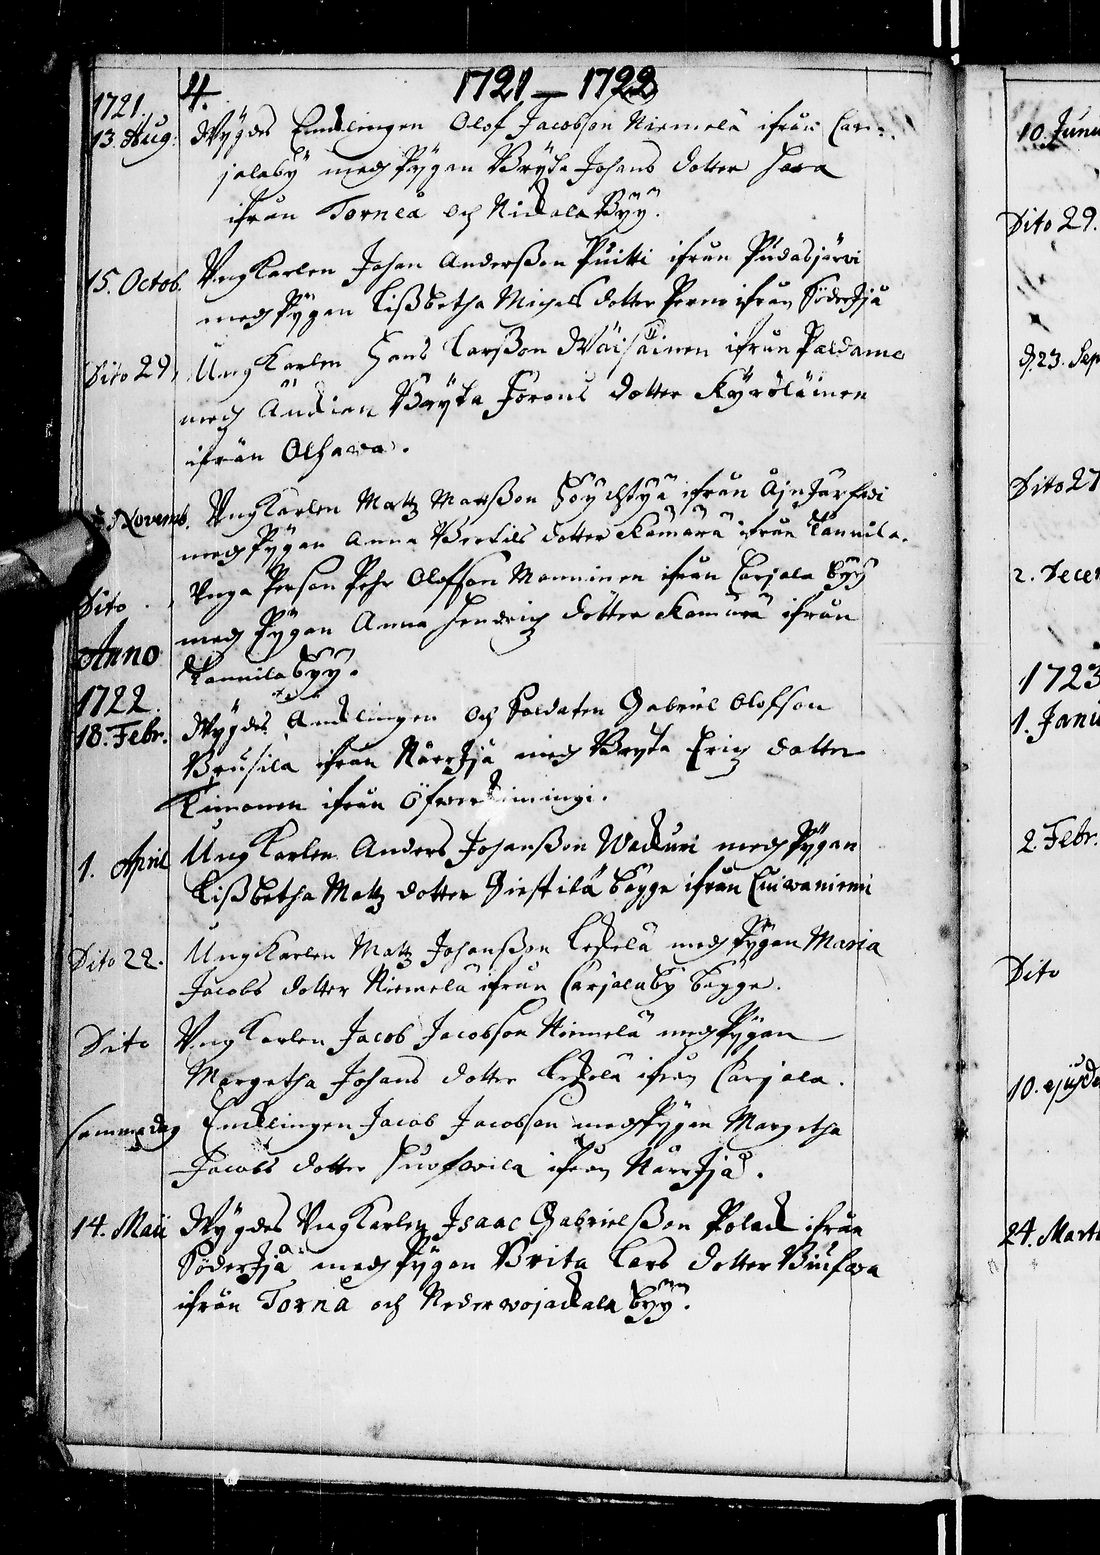 4. 1721 — 1722
1721.
13. Aug: Wygdes Enklingen Olof Jacobson Niemelä ifrån Car=
jalaby med Pygan Bryta Johans dotter
ifrån Torneå och Nickala Byy.
15. Octob. UngKarlen Johan Anderßon Puitti ifrån Pudasjärvi
med Pygan Lißbetha Michels dotter ifrån SöderIjå
Dito 29, UngKarlen Hans Larßon Wäisäinen ifrån Paldamo
med Änckian Bryta Jörans dotter Kyröläinen
ifrån Olhava.
Novemb. UngKarlen Matz Matsßon ifrån
med Pygan Anna Bertils dotter Kämärä ifrån Tannila.
Dito Unga Person Pehr Olofson Manninen ifrån Carjala Byy
med Pygan Anna Hendrich dotter Kämärä ifrån
Tannila byy.
Anno
1722.
18. Febr. Wygdes Encklingen och Soldaten Gabriel Olofson
Brusila ifrån NårrIjå med Bryta Erich dotter
Timonen ifrån Öfwerkimingi.
1. April UngKarlen Anders Johanßon Wackuri med Pygan
Lißbetha Matz dotter Giestilä begge ifrån Cuiwaniemi
Dito 22. UngKarlen Matz Johanßon med Pygan Maria
Jacobs dotter Niemelä ifrån Carjalaby begge.
Dito UngKarlen Jacob Jacobson Niemelä med Pygan
Margetha Johans dotter ifrån Carjala.
samma dag Encklingen Jacob Jacobson med Pygan Margetha
Jacobs dotter ifrån NårrIjå.
14. Maii Wygdes UngKarlen Isaac Gabrielßon Polack ifrån
SöderIjå med Pygan Brita Lars dotter
ifrån Tornå och Nederwojackala byy.
10. Junii
Dito 29.
d. 23. Sep
Dito 27
2. Decem
1723
1. Janu
2. Febr.
Dito
10. ejusde
24. Marti